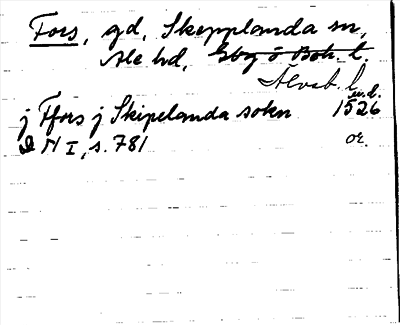 Fors, gd, Skepplanda sn,
Ale hd, Gbg o Boh. l.
Älvsb. l.
j Ffors j Skipelanda sokn 1526
D N I, s. 781 or.